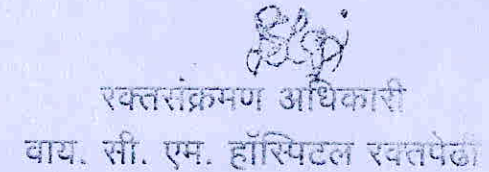 रक्तसंक्रमण अधिकारी
वाय. सी. एम. हॉस्पिटल रक्तपेढी